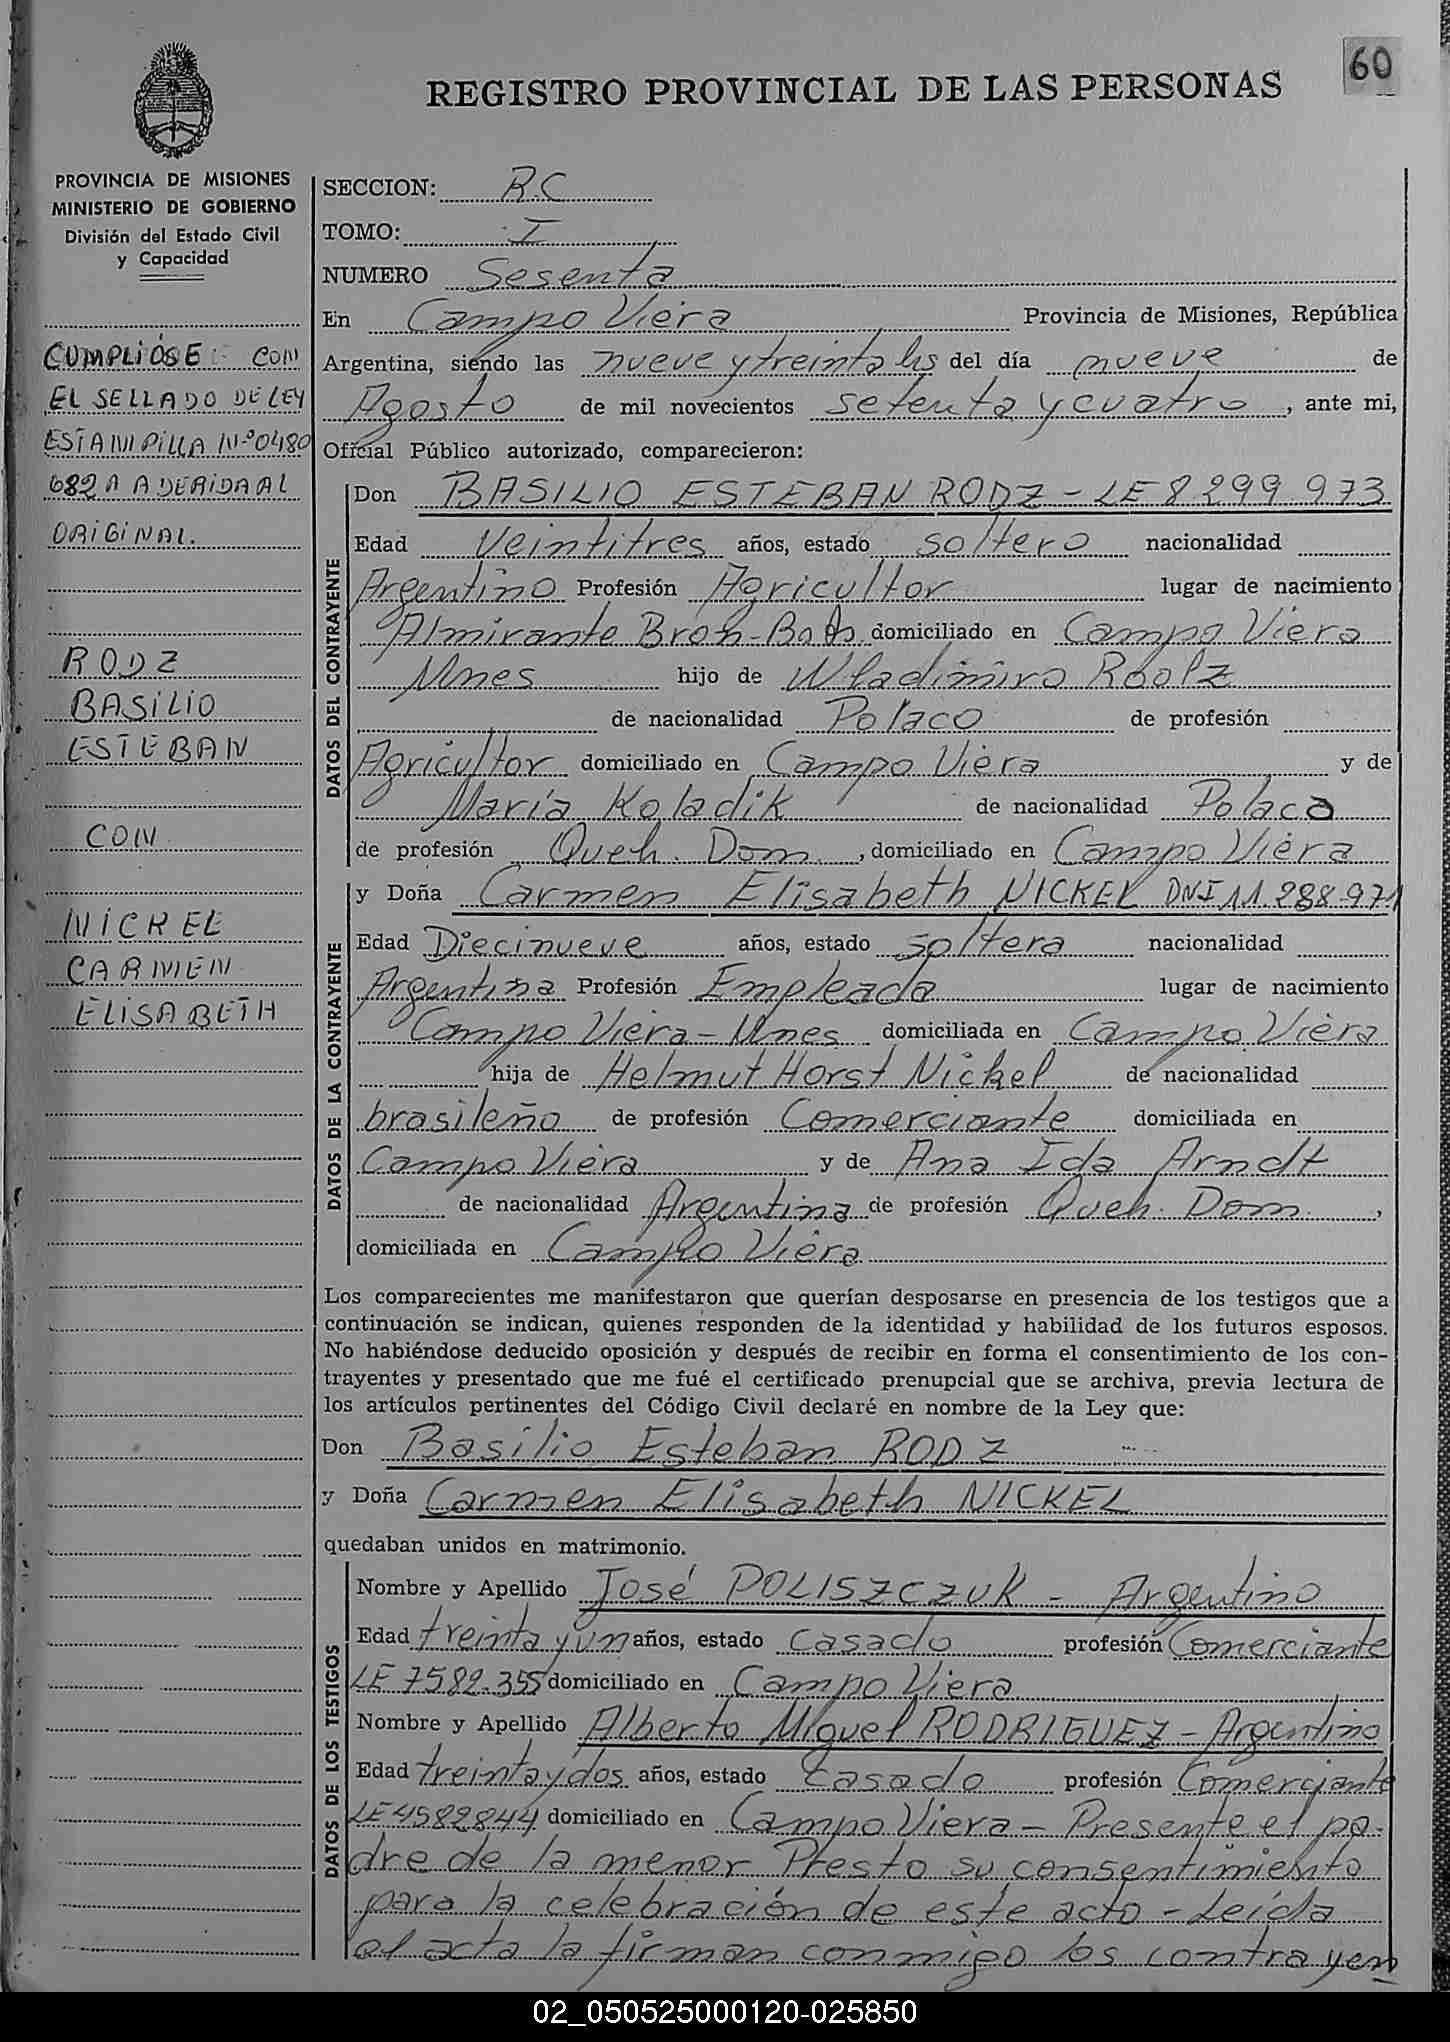 60
REGISTRO PROVINCIAL DE LAS PERSONAS
PROVINCIA DE MISIONES
MINISTERIO DE GOBIERNO
División del Estado Civil
y Capacidad
CUMPLIÓSE: CON
EL SELLADO DE LEY
ESTAMPILLA Nº 0480
682 A ADERIDA AL
ORIGINAL.
RODZ
BASILIO
ESTEBAN
CON
NICKEL
CARMEN
ELISABETH
SECCION: R.C
TOMO: I
NUMERO Sesenta
En Campo Viera Provincia de Misiones, República
Argentina, siendo las nueve y treinta hs del día nueve de
Agosto de mil novecientos setenta y cuatro, ante mi,
Oficial Público autorizado, comparecieron:
DATOS DEL CONTRAYENTE
Don BASILIO ESTEBAN RODZ - LE 8299973
Edad Veintitres años, estado soltero nacionalidad
Argentino Profesión Agricultor lugar de nacimiento
Almirante domiciliado en Campo Viera
Mnes hijo de Wladimiro Rodz
de nacionalidad Polaco de profesión
Agricultor domiciliado en Campo Viera y de
María Koladik de nacionalidad Polaca
de profesión Queh. Dom., domiciliado en Campo Viera
DATOS DE LA CONTRAYENTE
y Doña Carmen Elisabeth NICKEL DNI 11.288.971
Edad Diecinueve años, estado soltera nacionalidad
Argentina Profesión Empleada lugar de nacimiento
Campo Viera - Mnes domiciliada en Campo Viera
hija de Helmut Horst Nickel de nacionalidad
brasileño de profesión Comerciante domiciliada en
Campo Viera y de Ana Ida Arndt
de nacionalidad Argentina de profesión Queh. Dom.,
domiciliada en Campo Viera
Los comparecientes me manifestaron que querían desposarse en presencia de los testigos que a
continuación se indican, quienes responden de la identidad y habilidad de los futuros esposos.
No habiéndose deducido oposición y después de recibir en forma el consentimiento de los con-
trayentes y presentado que me fué el certificado prenupcial que se archiva, previa lectura de
los artículos pertinentes del Código Civil declaré en nombre de la Ley que:
Don Basilio Esteban RODZ
y Doña Carmen Elisabeth NICKEL
quedaban unidos en matrimonio.
DATOS DE LOS TESTIGOS
Nombre y Apellido José POLISZCZUK - Argentino
Edad treinta y un años, estado casado profesión Comerciante
LE 7582.355 domiciliado en Campo Viera
Nombre y Apellido Alberto Miguel RODRIGUEZ - Argentino
Edad treinta y dos años, estado casado profesión Comerciante
LE 4582844 domiciliado en Campo Viera - Presente el pa-
dre de la menor Presto su consentimiento
para la celebración de este acto - Leída
el acta la firman conmigo los contrayen
02_050525000120-025850